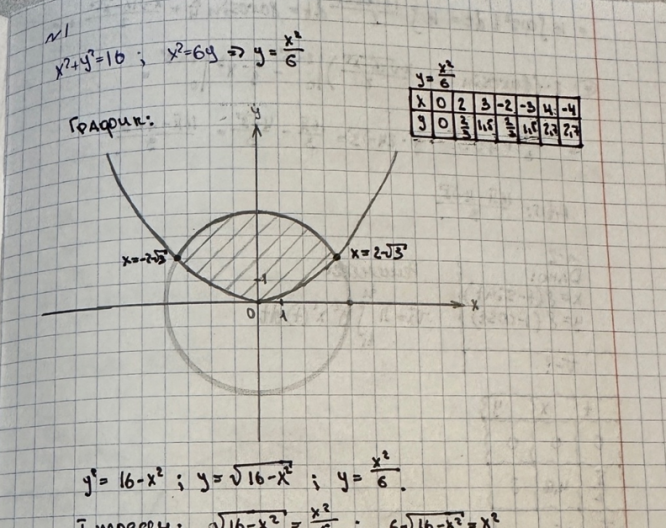 №1
x²+y²=16 ; x²=6y => y = x²/6
y = x²/6
x 0 2 3 -2 -3 4 -4
y 0 2/3 1,5 2/3 1,5 2,7 2,7
График:
y
x=-2√3
x=2√3
1
0 1 x
y² = 16-x² ; y = √16-x² ; y = x²/6 .
√16-x² = x²/6 ; 6√16-x² = x²